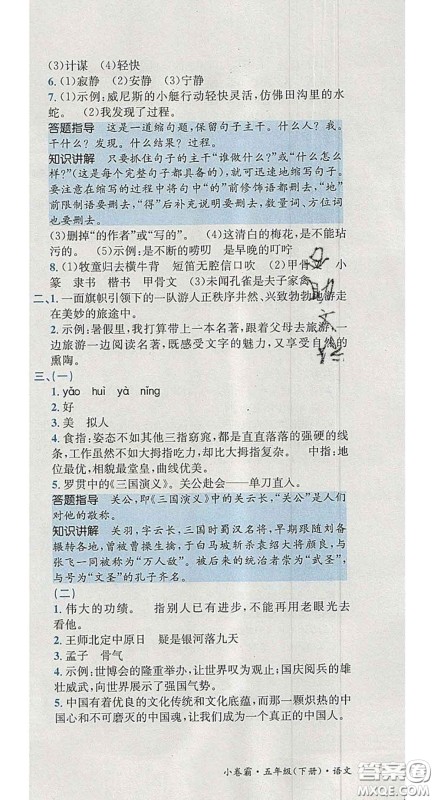 (3)计谋　(4)轻快
6. (1)寂静　(2)安静　(3)宁静
7. (1)示例:威尼斯的小艇行动轻快灵活,仿佛田沟里的水
蛇。　(2)我发现了过程。
答题指导　这是一道缩句题,保留句子主干。什么人?我。
干什么?发现。什么结果?过程。
知识讲解　只要抓住句子的主干“谁做什么”或“什么怎么
样”(这是每个完整句子都具备的),就可迅速地缩写句子。
要注意在缩写的过程中“的”前修饰语都要删去,“地”
前限制语要删去,“得”后补充说明要删去,数量词、方位词
也要删去。
(3)删掉“的作者”或“写的”。　(4)这清白的梅花,是不能玷
污的。　(5)示例:是不断的唠叨　是早晚的叮咛
8. (1)牧童归去横牛背　短笛无腔信口吹　(2)甲骨文　小
篆　隶书　楷书　甲骨文　(3)未闻孔雀是夫子家禽
二、1. 一面旗帜引领下的一队游人正秩序井然、兴致勃勃地游走
在美妙的旅途中。
2. 示例:暑假里,我打算带上一本名著,跟着父母去旅游,一
边旅游一边阅读名著,既感受文字的魅力,又享受自然的
熏陶。
三、(一)
1. yāo　huì　yà　nǐng
2. 好
3. 美　拟人
4. 食指:姿态不如其他三指窈窕,都是直直落落的强硬的线
条,工作虽然不如大拇指吃力,却比大拇指复杂。　中指:地
位最优,相貌最堂皇,曲线优美。
5. 罗贯中的《三国演义》。关公赴会——单刀直入。
答题指导　关公,即《三国演义》中的关云长,“关公”是人们
对他的敬称。
知识讲解　关羽,字云长,三国时蜀汉名将,早期跟随刘备
辗转各地,曾被曹操生擒,于白马坡斩袁绍大将颜良,与
张飞一同被称为“万人敌”。被后来的统治者崇为“武圣”,
与号为“文圣”的孔子齐名。
(二)
1. 伟大的功绩。　指别人已有进步,不能再用老眼光去
看他。
2. 王师北定中原日　疑是银河落九天
3. 孟子　骨气
4. 示例:世博会的隆重举办,让世界叹为观止。国庆阅兵的雄
壮威武,向世界展示了强国气势。
5. 中国有着优良的文化传统和文化底蕴,而那一颗炽热的中
国心和不可磨灭的中国魂,让我们成为一个真正的中国人。
小卷霸·五年级(下册)·语文